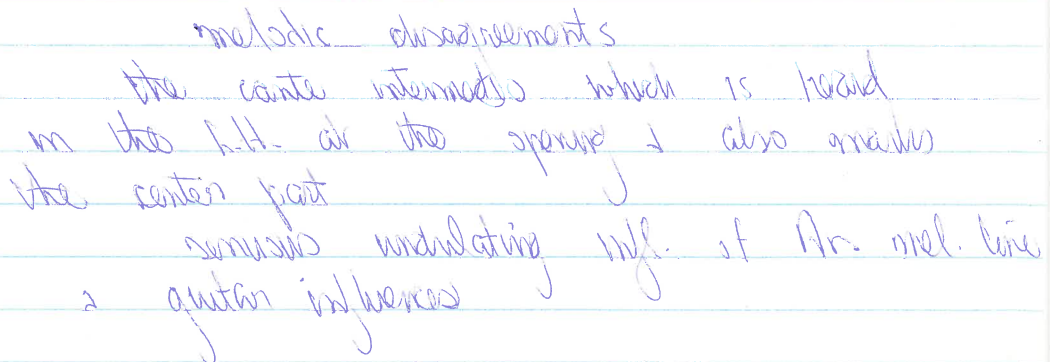 melodic disagreements
the cante intermedio which is heard
in the L.H. at the opening & also marks
the center part
sensuous undulating infl. of Ar. mel. line
& guitar influences